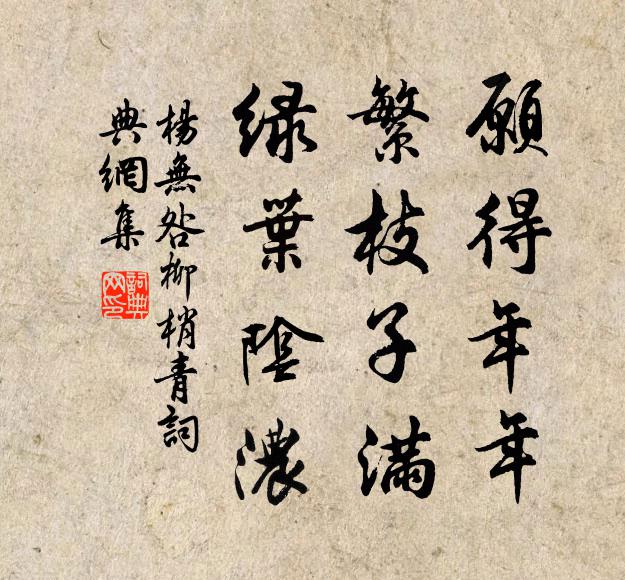 願得年年
繁枝子滿
緑葉陰濃
楊無咎柳梢青詞
典網集
詞典
网印